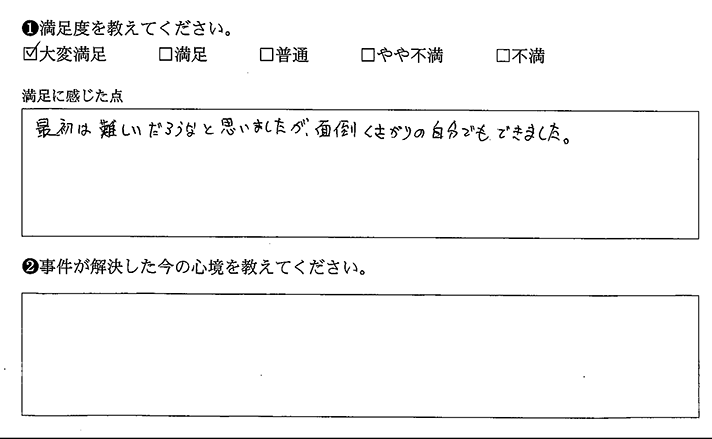 ❶満足度を教えてください。
☑大変満足 □満足 □普通 □やや不満 □不満
満足に感じた点
最初は難しいだろうなと思いましたが、面倒くさがりの自分でもできました。
❷事件が解決した今の心境を教えてください。